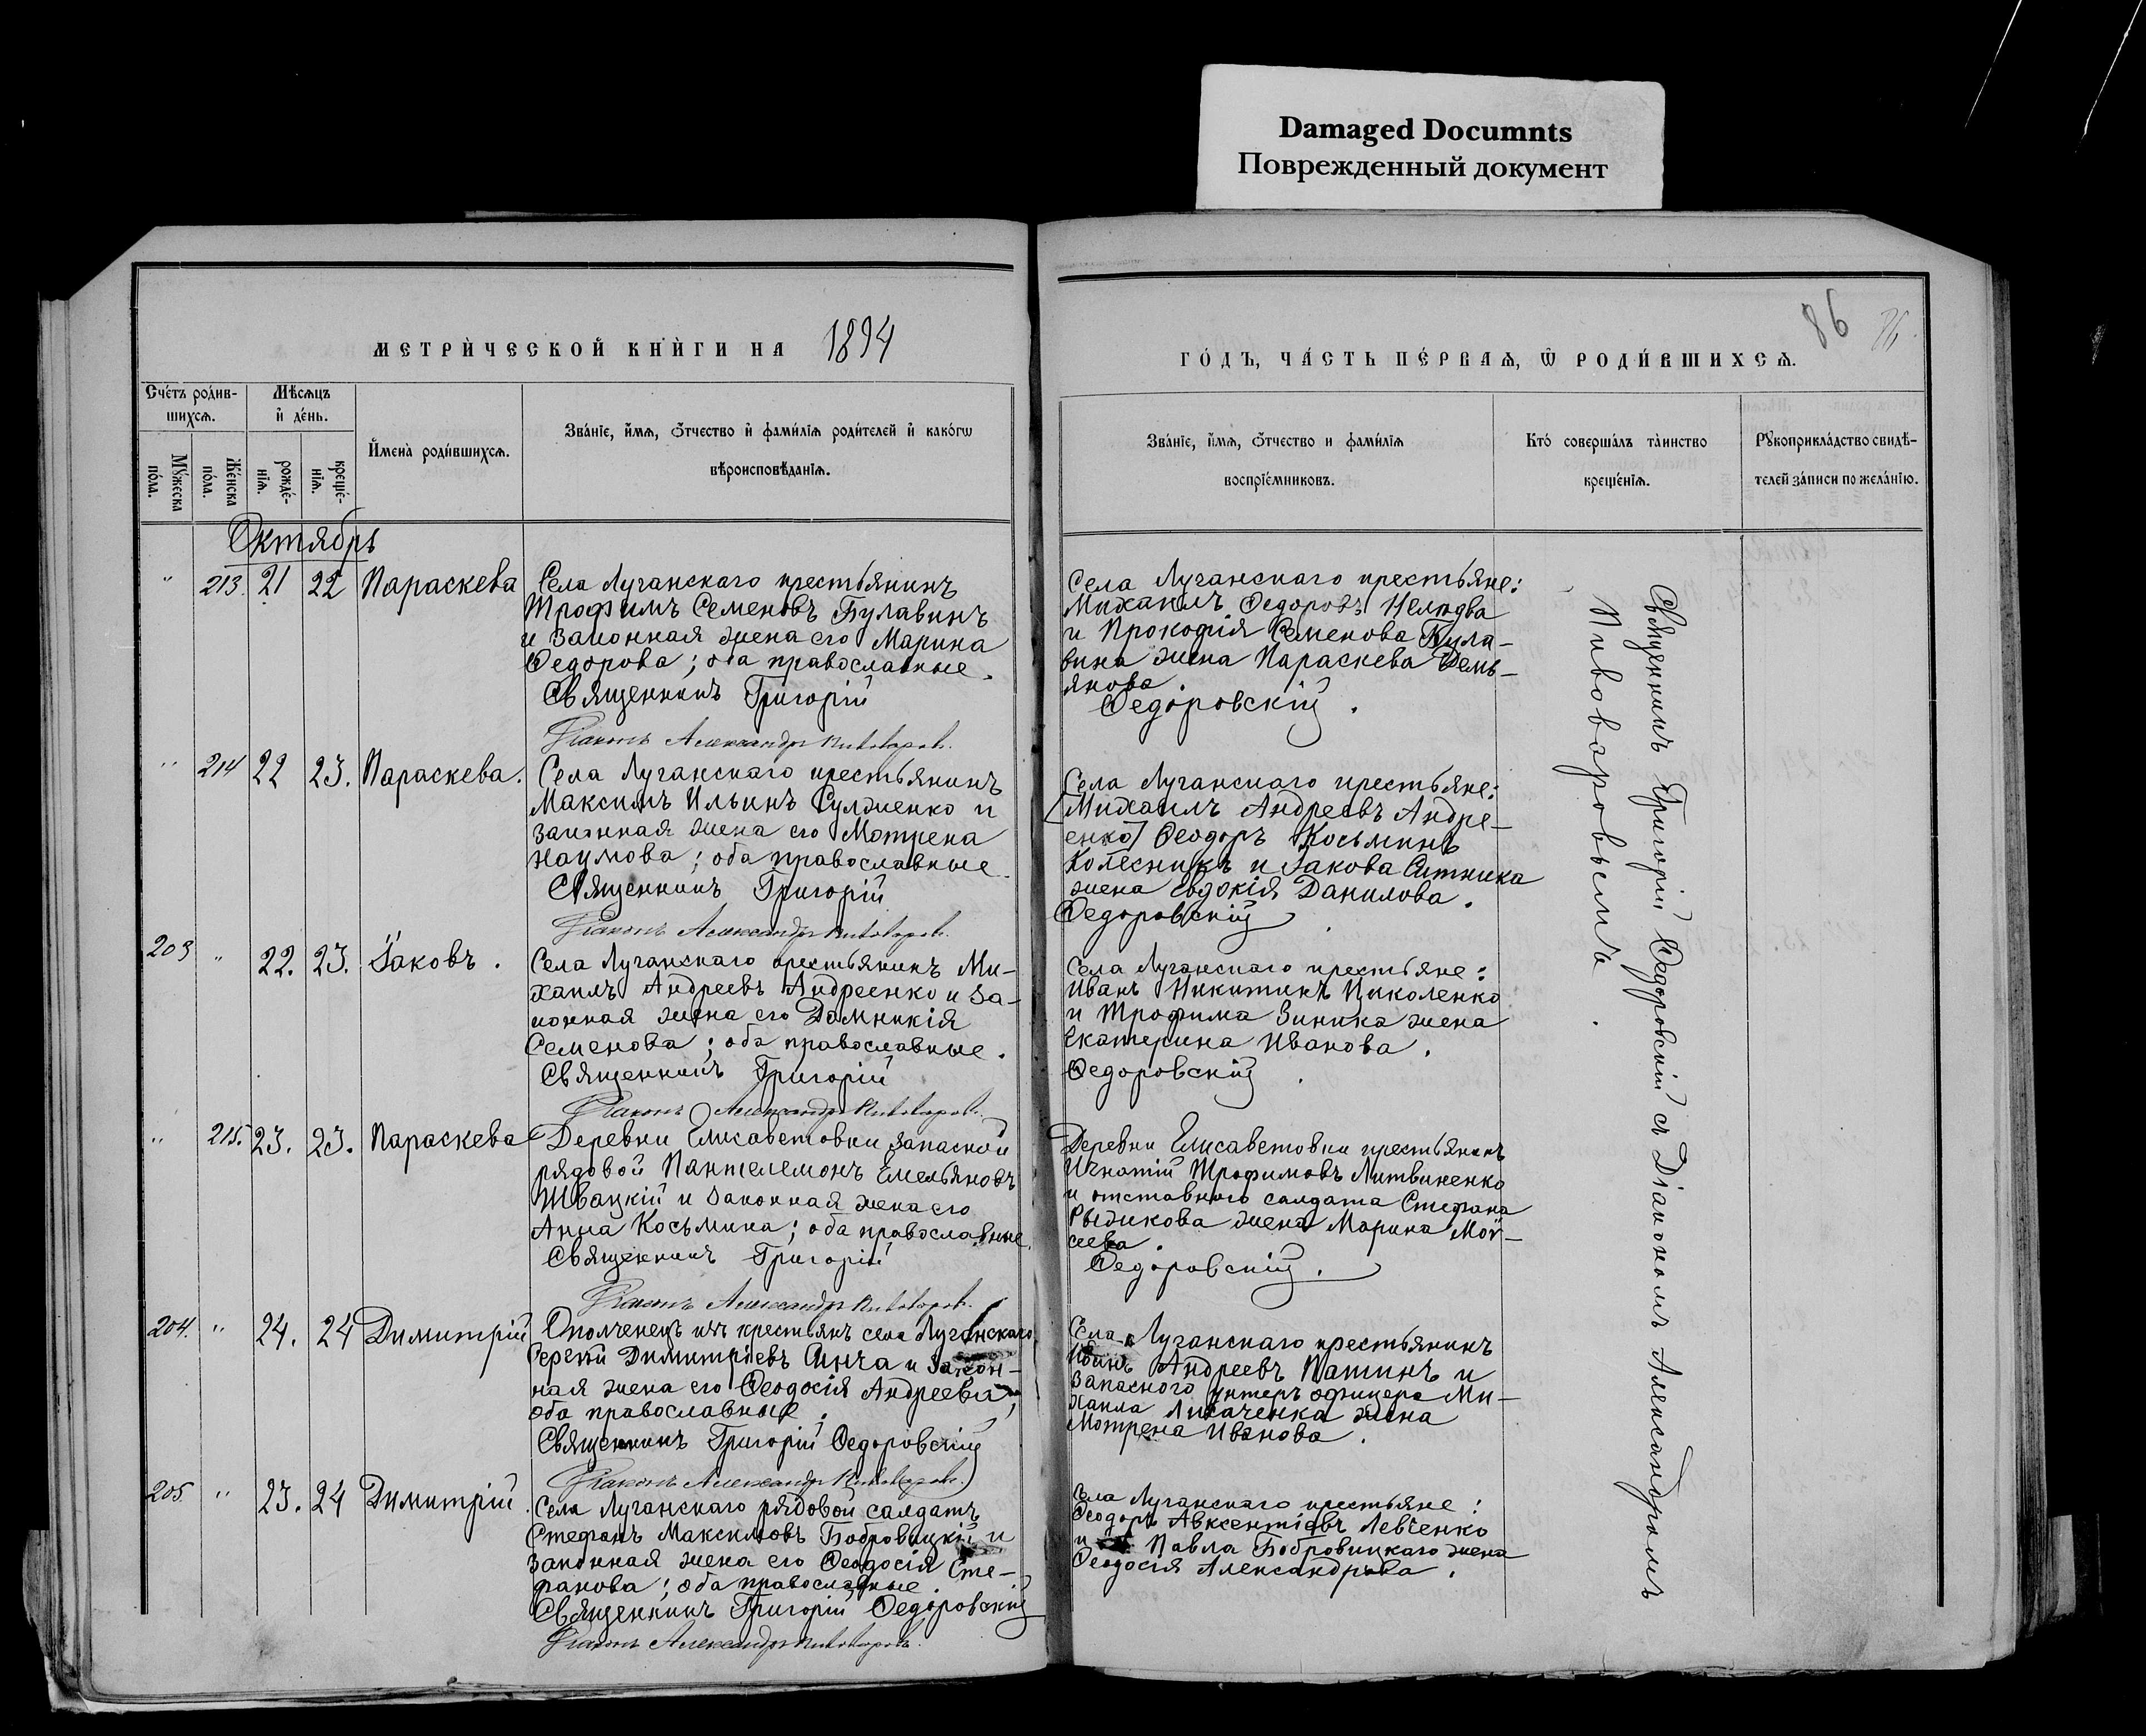 Damaged Documnts
Поврежденный документ
МЕТРИ́ЧЕСКОЙ КНИ́ГИ НА 1894
ГО́ДЪ, ЧА́СТЬ ПЕ́РВАѦ, Ѿ РОДИ́ВШИХСѦ.
86
Сче́тъ роди́в-
шихсѧ.
Мѣ́сѧцъ
и҆ де́нь.
Мꙋ́жеска
по́ла.
Же́нска
по́ла.
рожде́-
нїѧ.
креще́-
нїѧ.
И҆мена̀ роди́вшихсѧ.
Зва́нїе, и҆́мѧ, ѻ҆́тчество и҆ фами́лїѧ роди́телей и҆ како́гѡ
вѣроисповѣ́данїѧ.
Зва́нїе, и҆́мѧ, ѻ҆́тчество и фами́лїѧ
воспрїе́мниковъ.
Кто́ соверша́лъ та́инство
креще́нїѧ.
Рꙋкоприкла́дство свидѣ́-
телей за́писи по жела́нїю.
Октябрь
" 213. 21 22 Параскева
Села Луганскаго крестьянинъ
Трофимъ Семеновъ Булавинъ
и законная жена его Марина
Ѳедорова; оба православные.
Священникъ Григорій
Діаконъ Александръ Пивоваровъ.
Села Луганскаго крестьяне:
Михаилъ Ѳедоровъ
и Прокофія Семенова Була-
вина жена Параскева Демь-
янова.
Ѳедоровскій.
" 214 22 23. Параскева.
Села Луганскаго крестьянинъ
Максимъ Ильинъ Сулженко и
законная жена его Мотрена
Наумова; оба православные.
Священникъ Григорій
Діаконъ Александръ Пивоваровъ.
Села Луганскаго крестьяне:
[Михаилъ Андреевъ Андре-
енко] Ѳеодоръ Косьминъ
Колесникъ и Іакова Ситника
жена Евдокія Данилова.
Ѳедоровскій
203 " 22. 23. Іаковъ.
Села Луганскаго крестьянинъ Ми-
хаилъ Андреевъ Андреенко и за-
конная жена его Домникія
Семенова; оба православные.
Священникъ Григорій
Діаконъ Александръ Пивоваровъ.
Села Луганскаго крестьяне:
Иванъ Никитинъ Николенко
и Трофима Зиника жена
Екатерина Иванова.
Ѳедоровскій
" 215. 23. 23. Параскева
Деревни Елисаветовки запасной
рядовой Пантелемонъ Емельяновъ
Швацкій и законная жена его
Анна Косьмина; оба православные.
Священникъ Григорій
Діаконъ Александръ Пивоваровъ.
Деревни Елисаветовки крестьянинъ
Игнатій Трофимовъ Литвиненко
и отставного салдата Стефана
Рыжкова жена Марина Мои-
сеева.
Ѳедоровскій.
204. " 24. 24 Димитрій
Ополченецъ изъ крестьянъ села Луганскаго
Сергѣй Димитріевъ Синча и закон-
ная жена его Ѳеодосія Андреева;
оба православные.
Священникъ Григорій Ѳедоровскій
Діаконъ Александръ Пивоваровъ.
Села Луганскаго крестьянинъ
Иванъ Андреевъ Пашинъ и
запасного унтеръ офицера Ми-
хаила Лихаченка жена
Мотрена Иванова.
205. " 23. 24 Димитрій.
Села Луганскаго рядовой салдатъ
Стефанъ Максимовъ Бобровицкій и
законная жена его Ѳеодосія Сте-
фанова; оба православные.
Священникъ Григорій Ѳедоровскій
Діаконъ Александръ Пивоваровъ.
Села Луганскаго крестьяне:
Ѳеодоръ Авксентіевъ Левченко
и Павла Бобровицкаго жена
Ѳеодосія Александрова.
Священникъ Григорій Ѳедоровскій съ Діакономъ Александромъ
Пивоваровымъ.